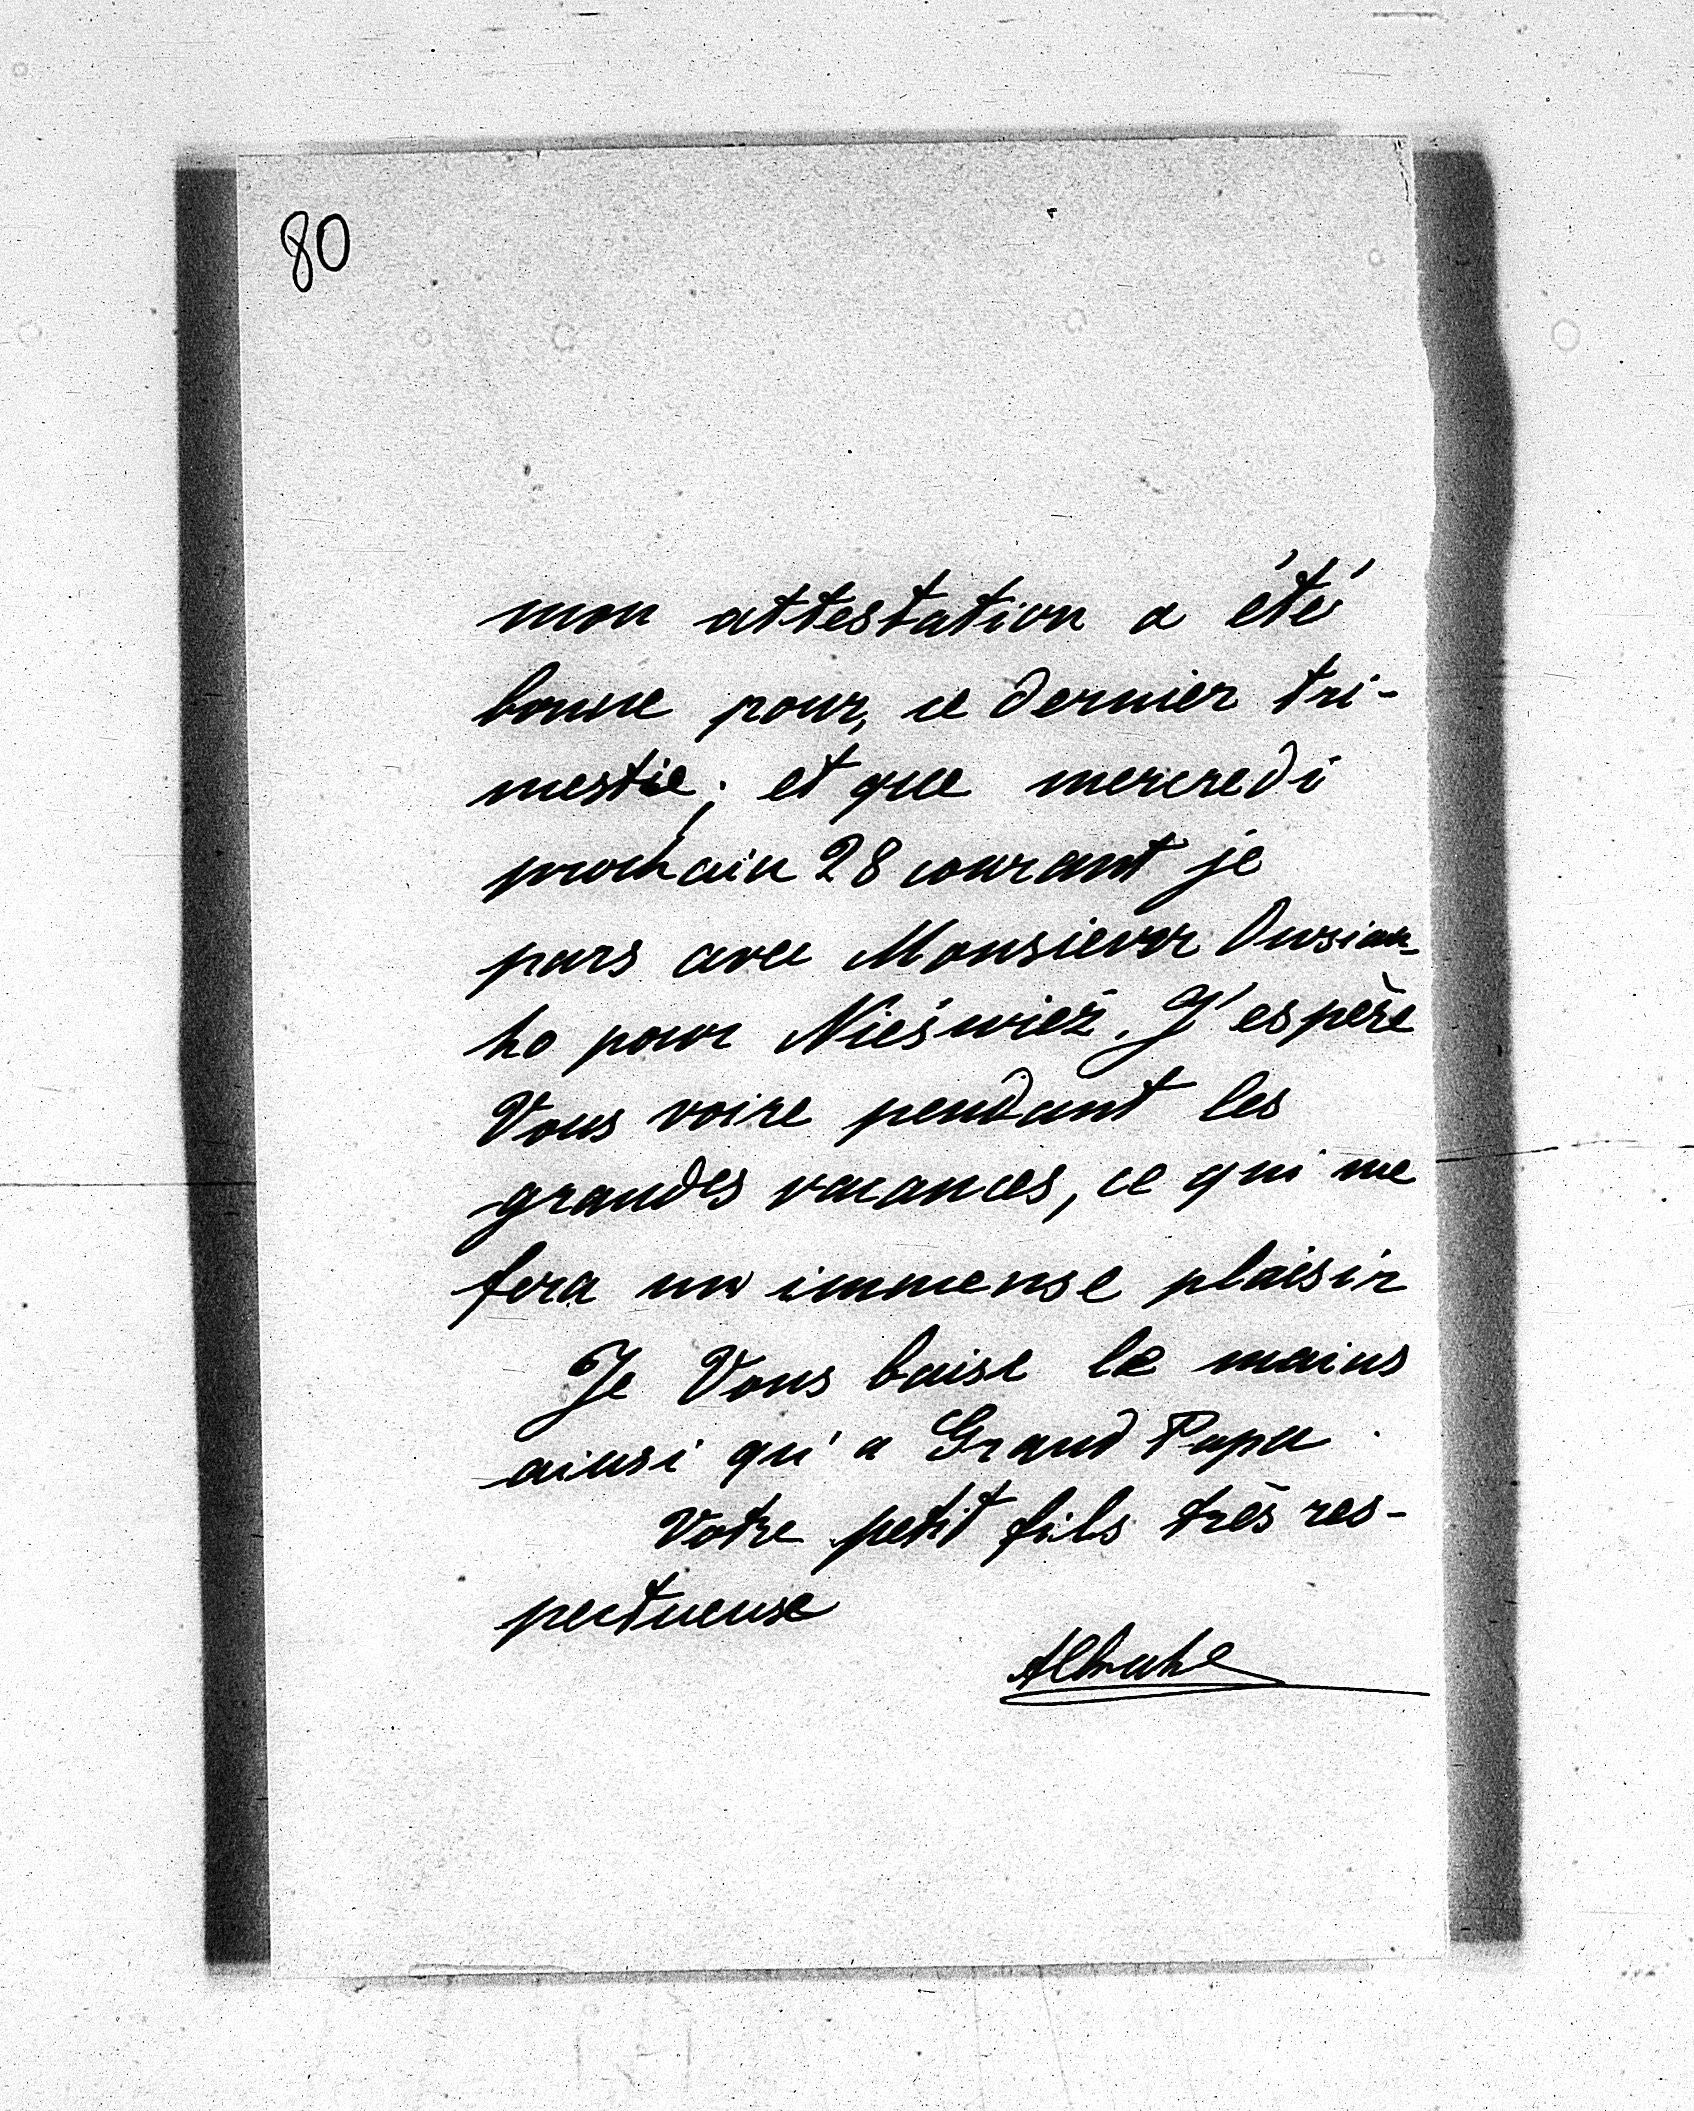 80
mon attestation a été
bonne pour, ce dernier tri-
mestie; et que mercredi
prochain 28 courant je
pars avec Monsieur
ko pour Nieświeź. J'espère
Vous voire pendant les
grandes vacances, ce qui me
fera un immense plaisir
Je Vous baise le mains
ainsi qu'a Grand Papa.
Votre petit fils très res-
pectueuse